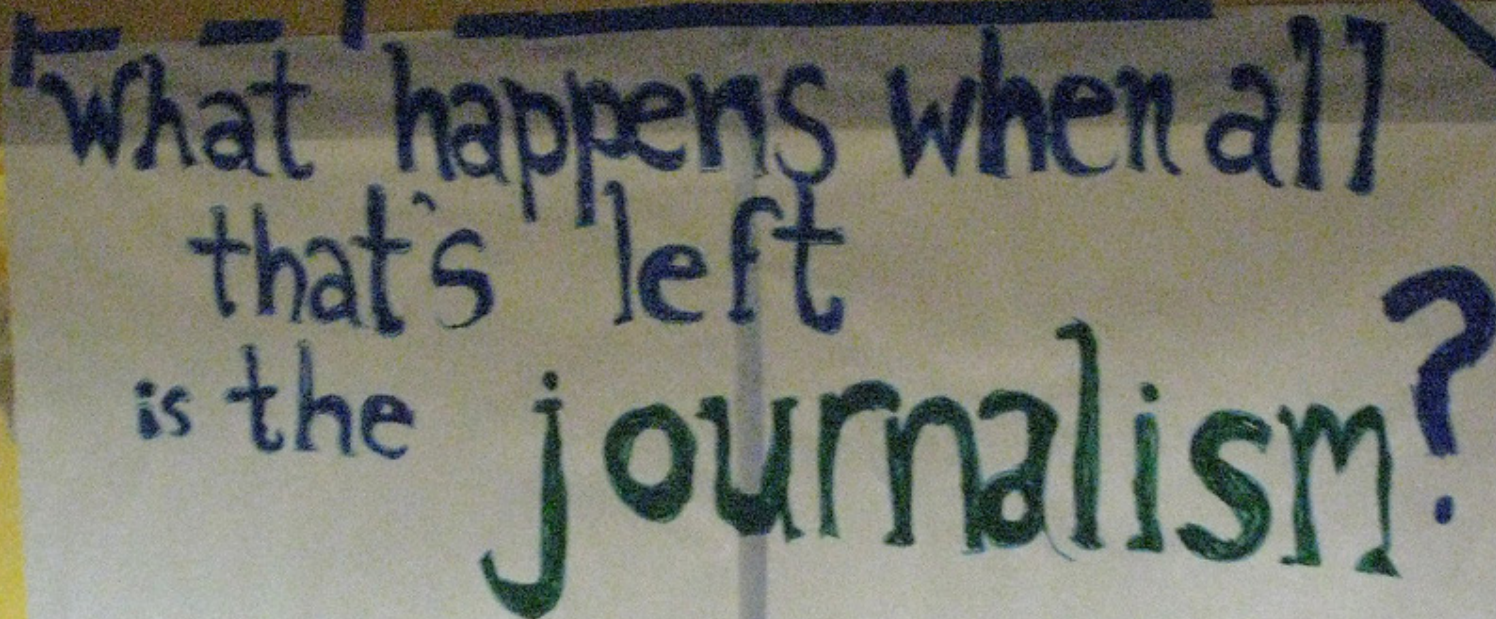 What happens when all
that's left
is the journalism?